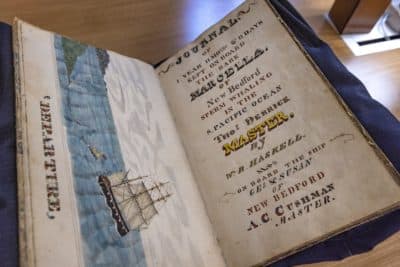 DEPARTURE,
JOURNAL
OF
1 YEAR 11 MOS & 0 DAYS
KEPT ON BOARD
THE BARK
MARCELLA,
OF
New Bedford
SPERM WHALING
IN THE
S. PACIFIC OCEAN
Thos Derrick
MASTER.
By
Wm B. HASKELL.
ALSO
ON BOARD THE SHIP
GEO & SUSAN
OF
NEW BEDFORD
A. C. CUSHMAN
MASTER.